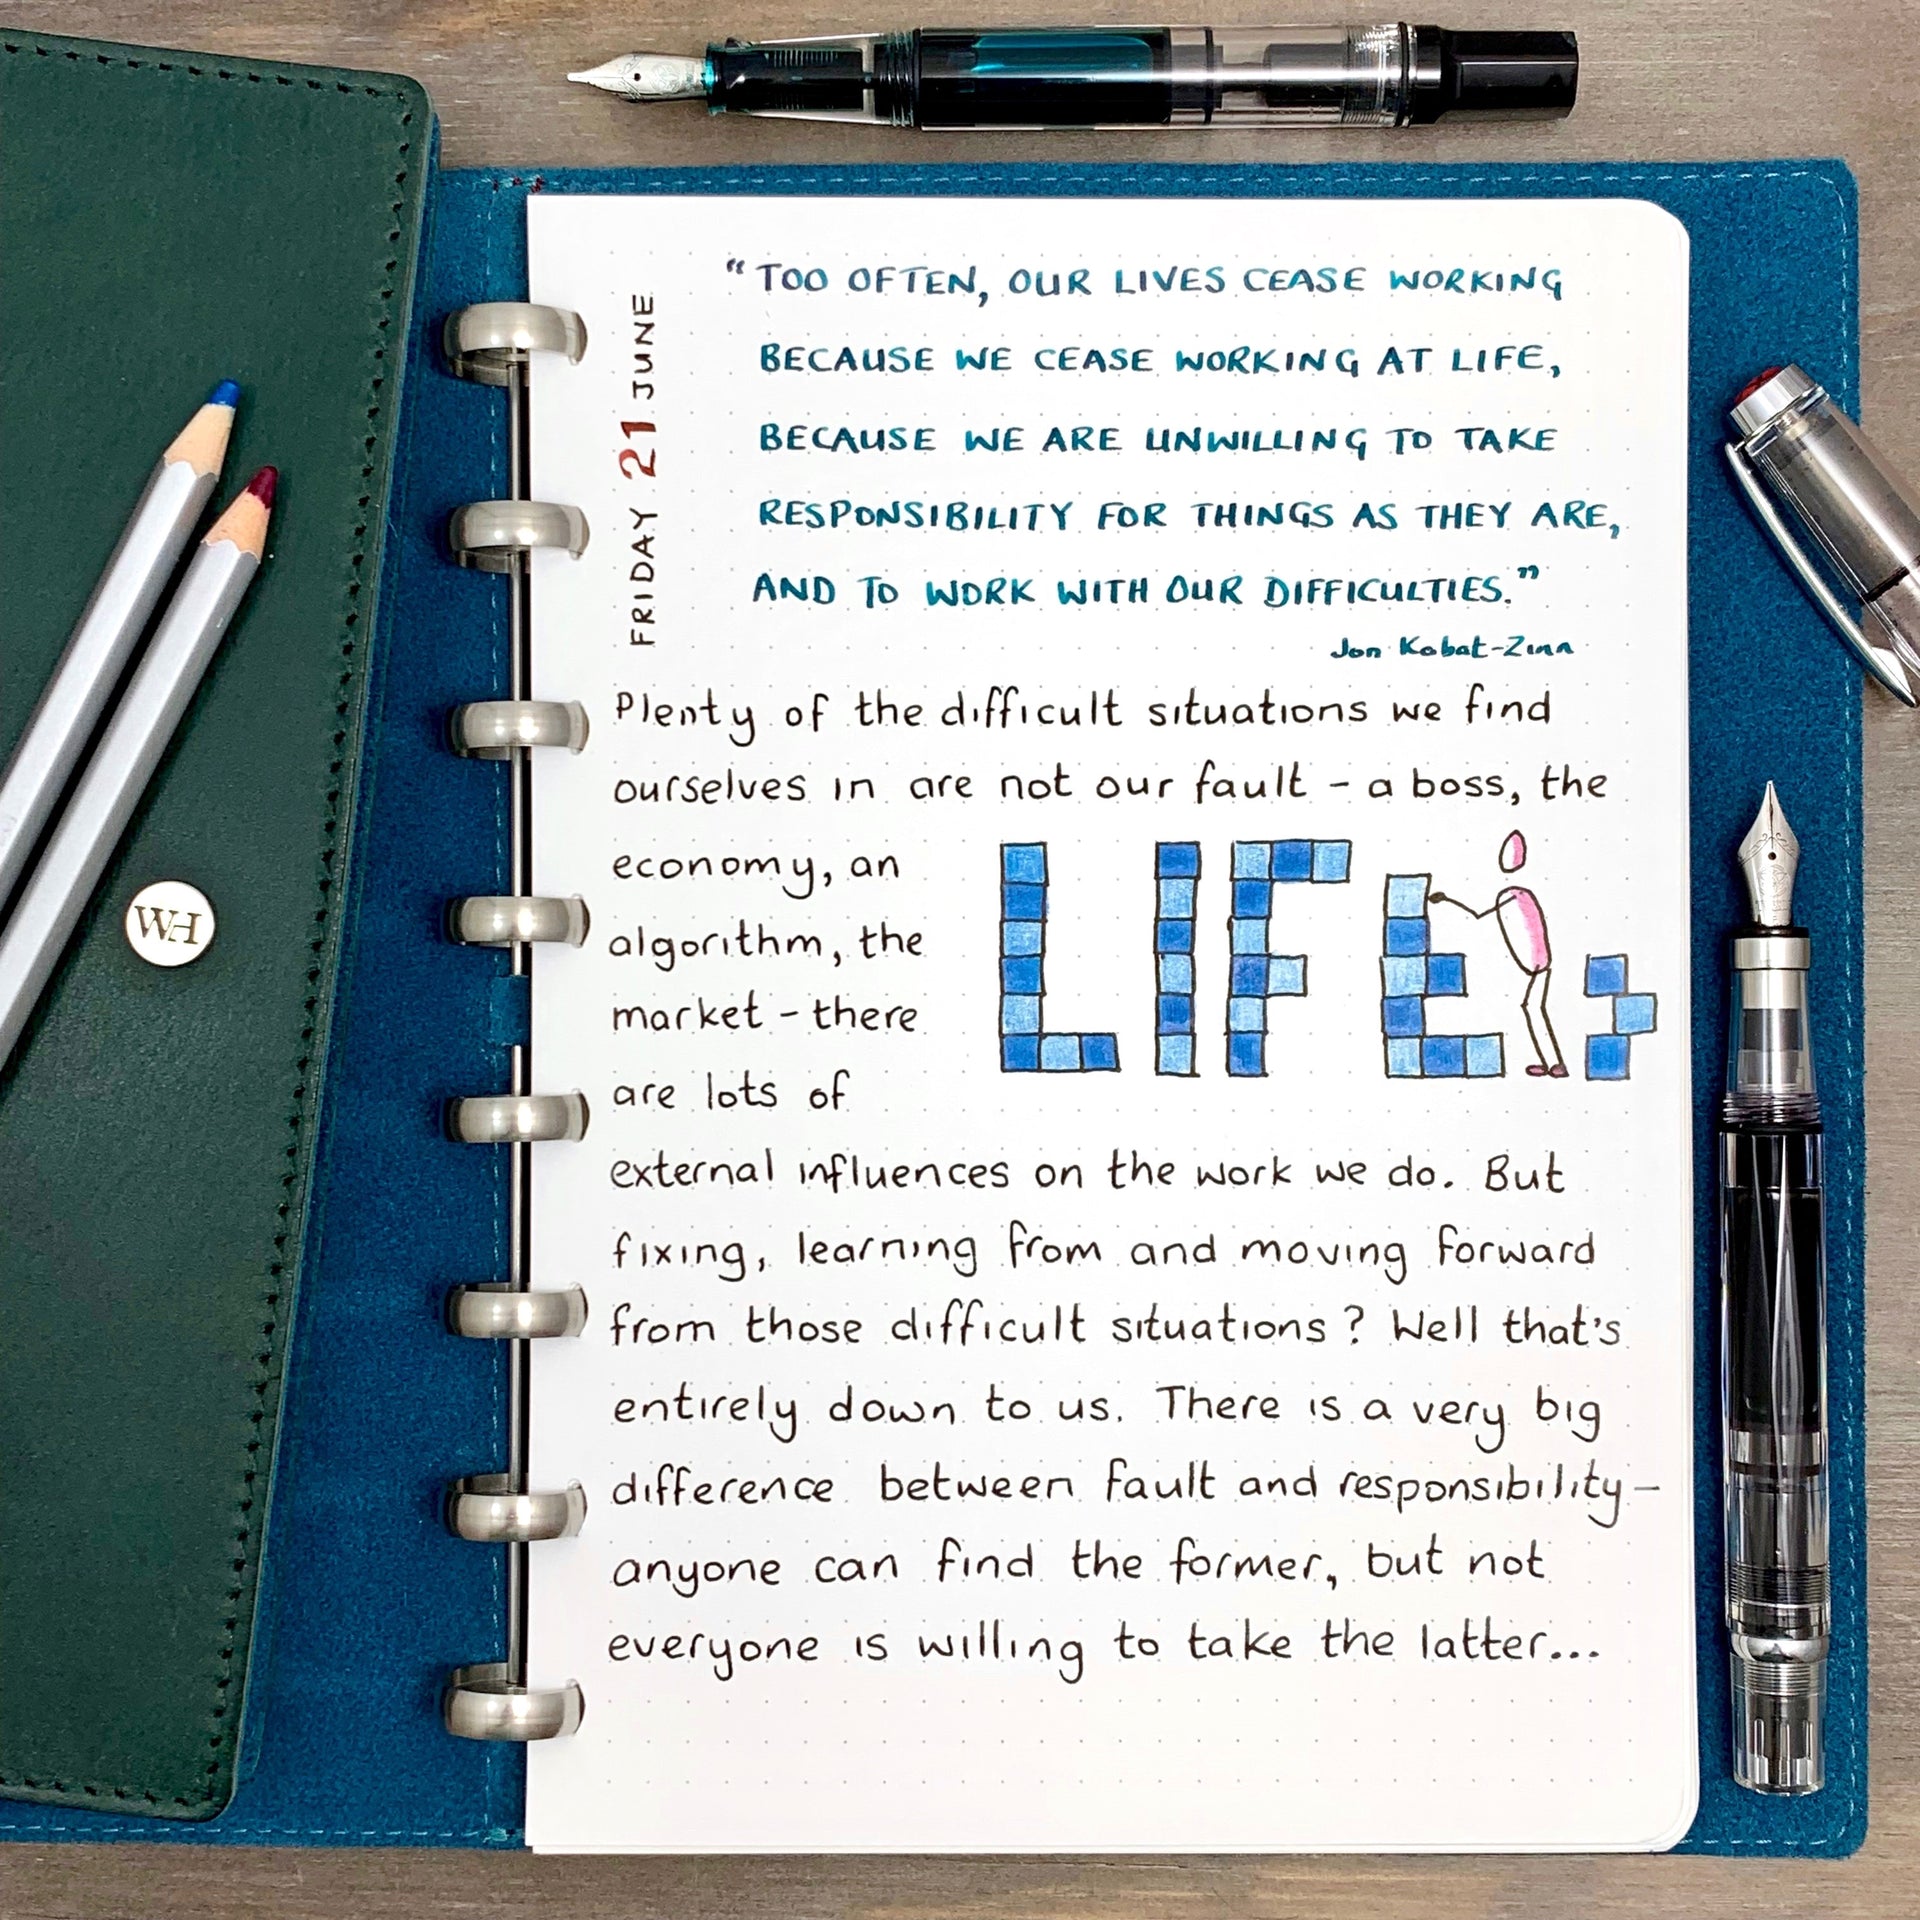 FRIDAY 21 JUNE
"TOO OFTEN, OUR LIVES CEASE WORKING
BECAUSE WE CEASE WORKING AT LIFE,
BECAUSE WE ARE UNWILLING TO TAKE
RESPONSIBILITY FOR THINGS AS THEY ARE,
AND TO WORK WITH OUR DIFFICULTIES."
Jon Kabat-Zinn
Plenty of the difficult situations we find
ourselves in are not our fault - a boss, the
economy, an
algorithm, the
market - there
are lots of
LIFE
external influences on the work we do. But
fixing, learning from and moving forward
from those difficult situations? Well that's
entirely down to us. There is a very big
difference between fault and responsibility -
anyone can find the former, but not
everyone is willing to take the latter...
WH